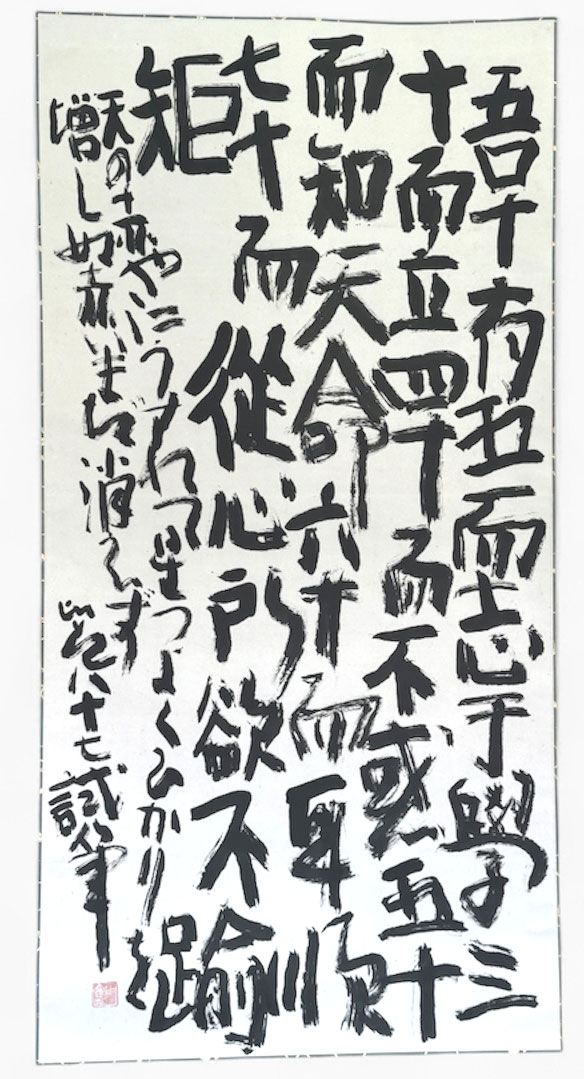 吾十有五而志于學三
十而立四十而不惑五十
而知天命六十而耳順
七十而從心所欲不踰
矩
天の赤ややにうすれて星つよくひかりを
増しぬ赤いまだ消えず
八十七試筆